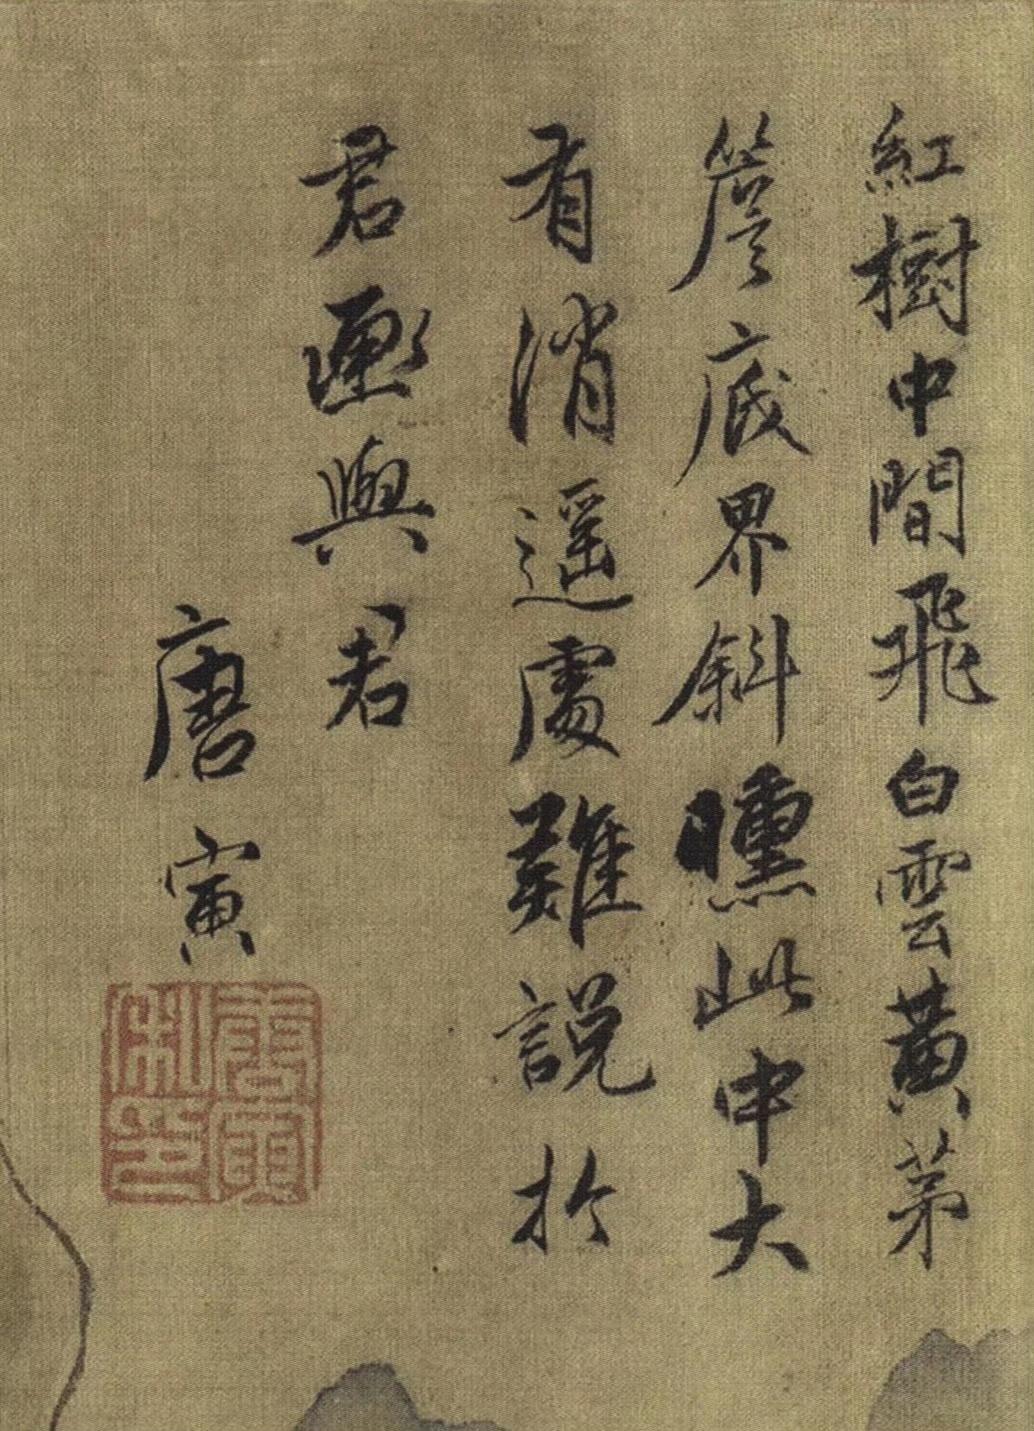 紅樹中間飛白雲黃茅
簷底界斜曛此中大
有消遥處難說於
君畫與君
唐寅